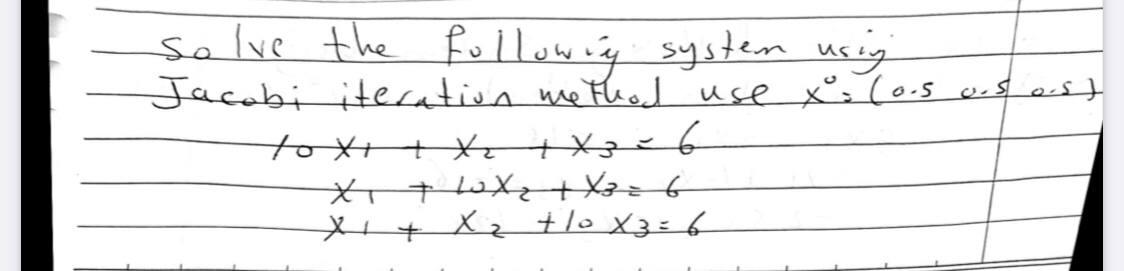 Solve the following system using
Jacobi iteration method use x⁰ = (0.5 0.5 0.5)
10 X1 + X2 + X3 = 6
X1 + 10X2 + X3 = 6
X1 + X2 + 10 X3 = 6